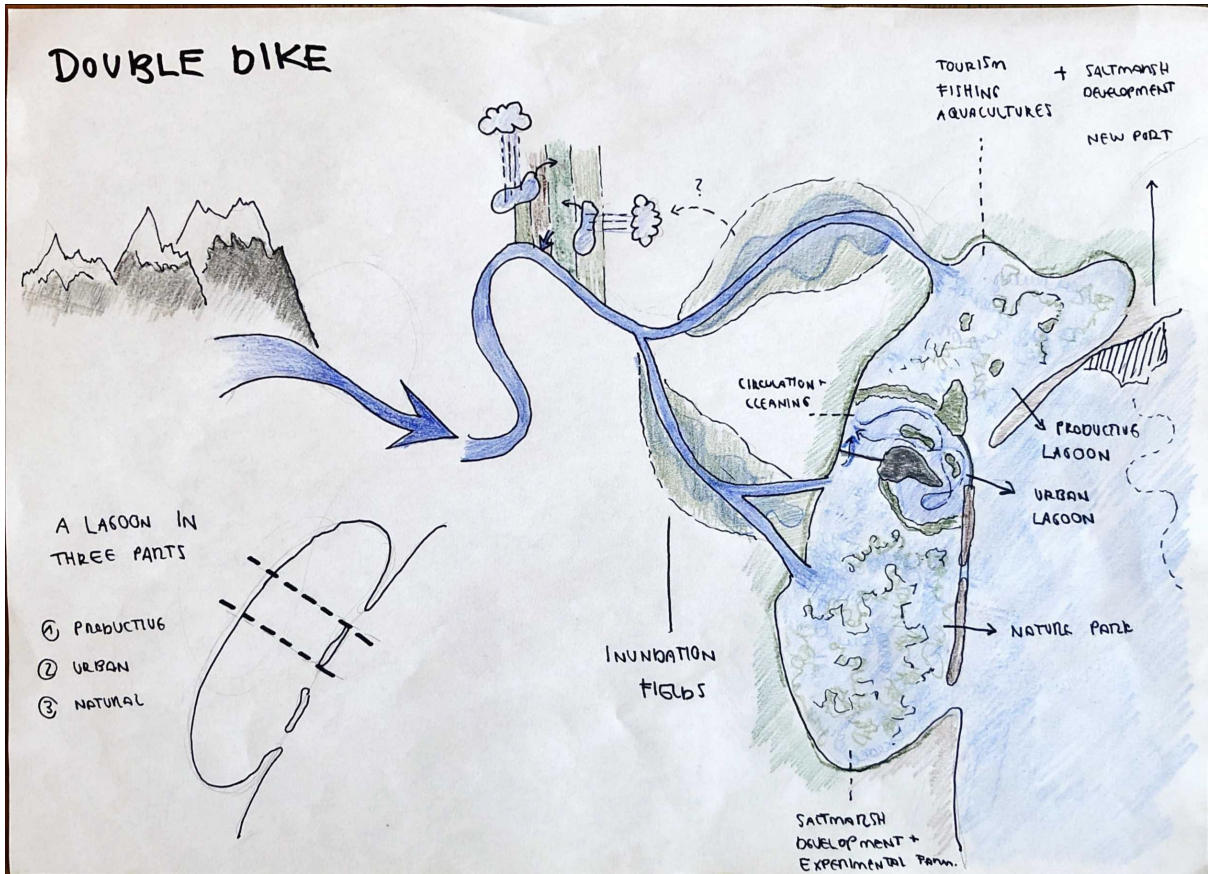 DOUBLE DIKE
TOURISM
FISHING
AQUACULTURES
+ SALTMARSH
DEVELOPMENT
NEW PORT
?
CIRCULATION +
CLEANING
PRODUCTIVE
LAGOON
URBAN
LAGOON
A LAGOON IN
THREE PARTS
① PRODUCTIVE
② URBAN
③ NATURAL
INUNDATION
FIELDS
NATURE PARK
SALTMARSH
DEVELOPMENT +
EXPERIMENTAL